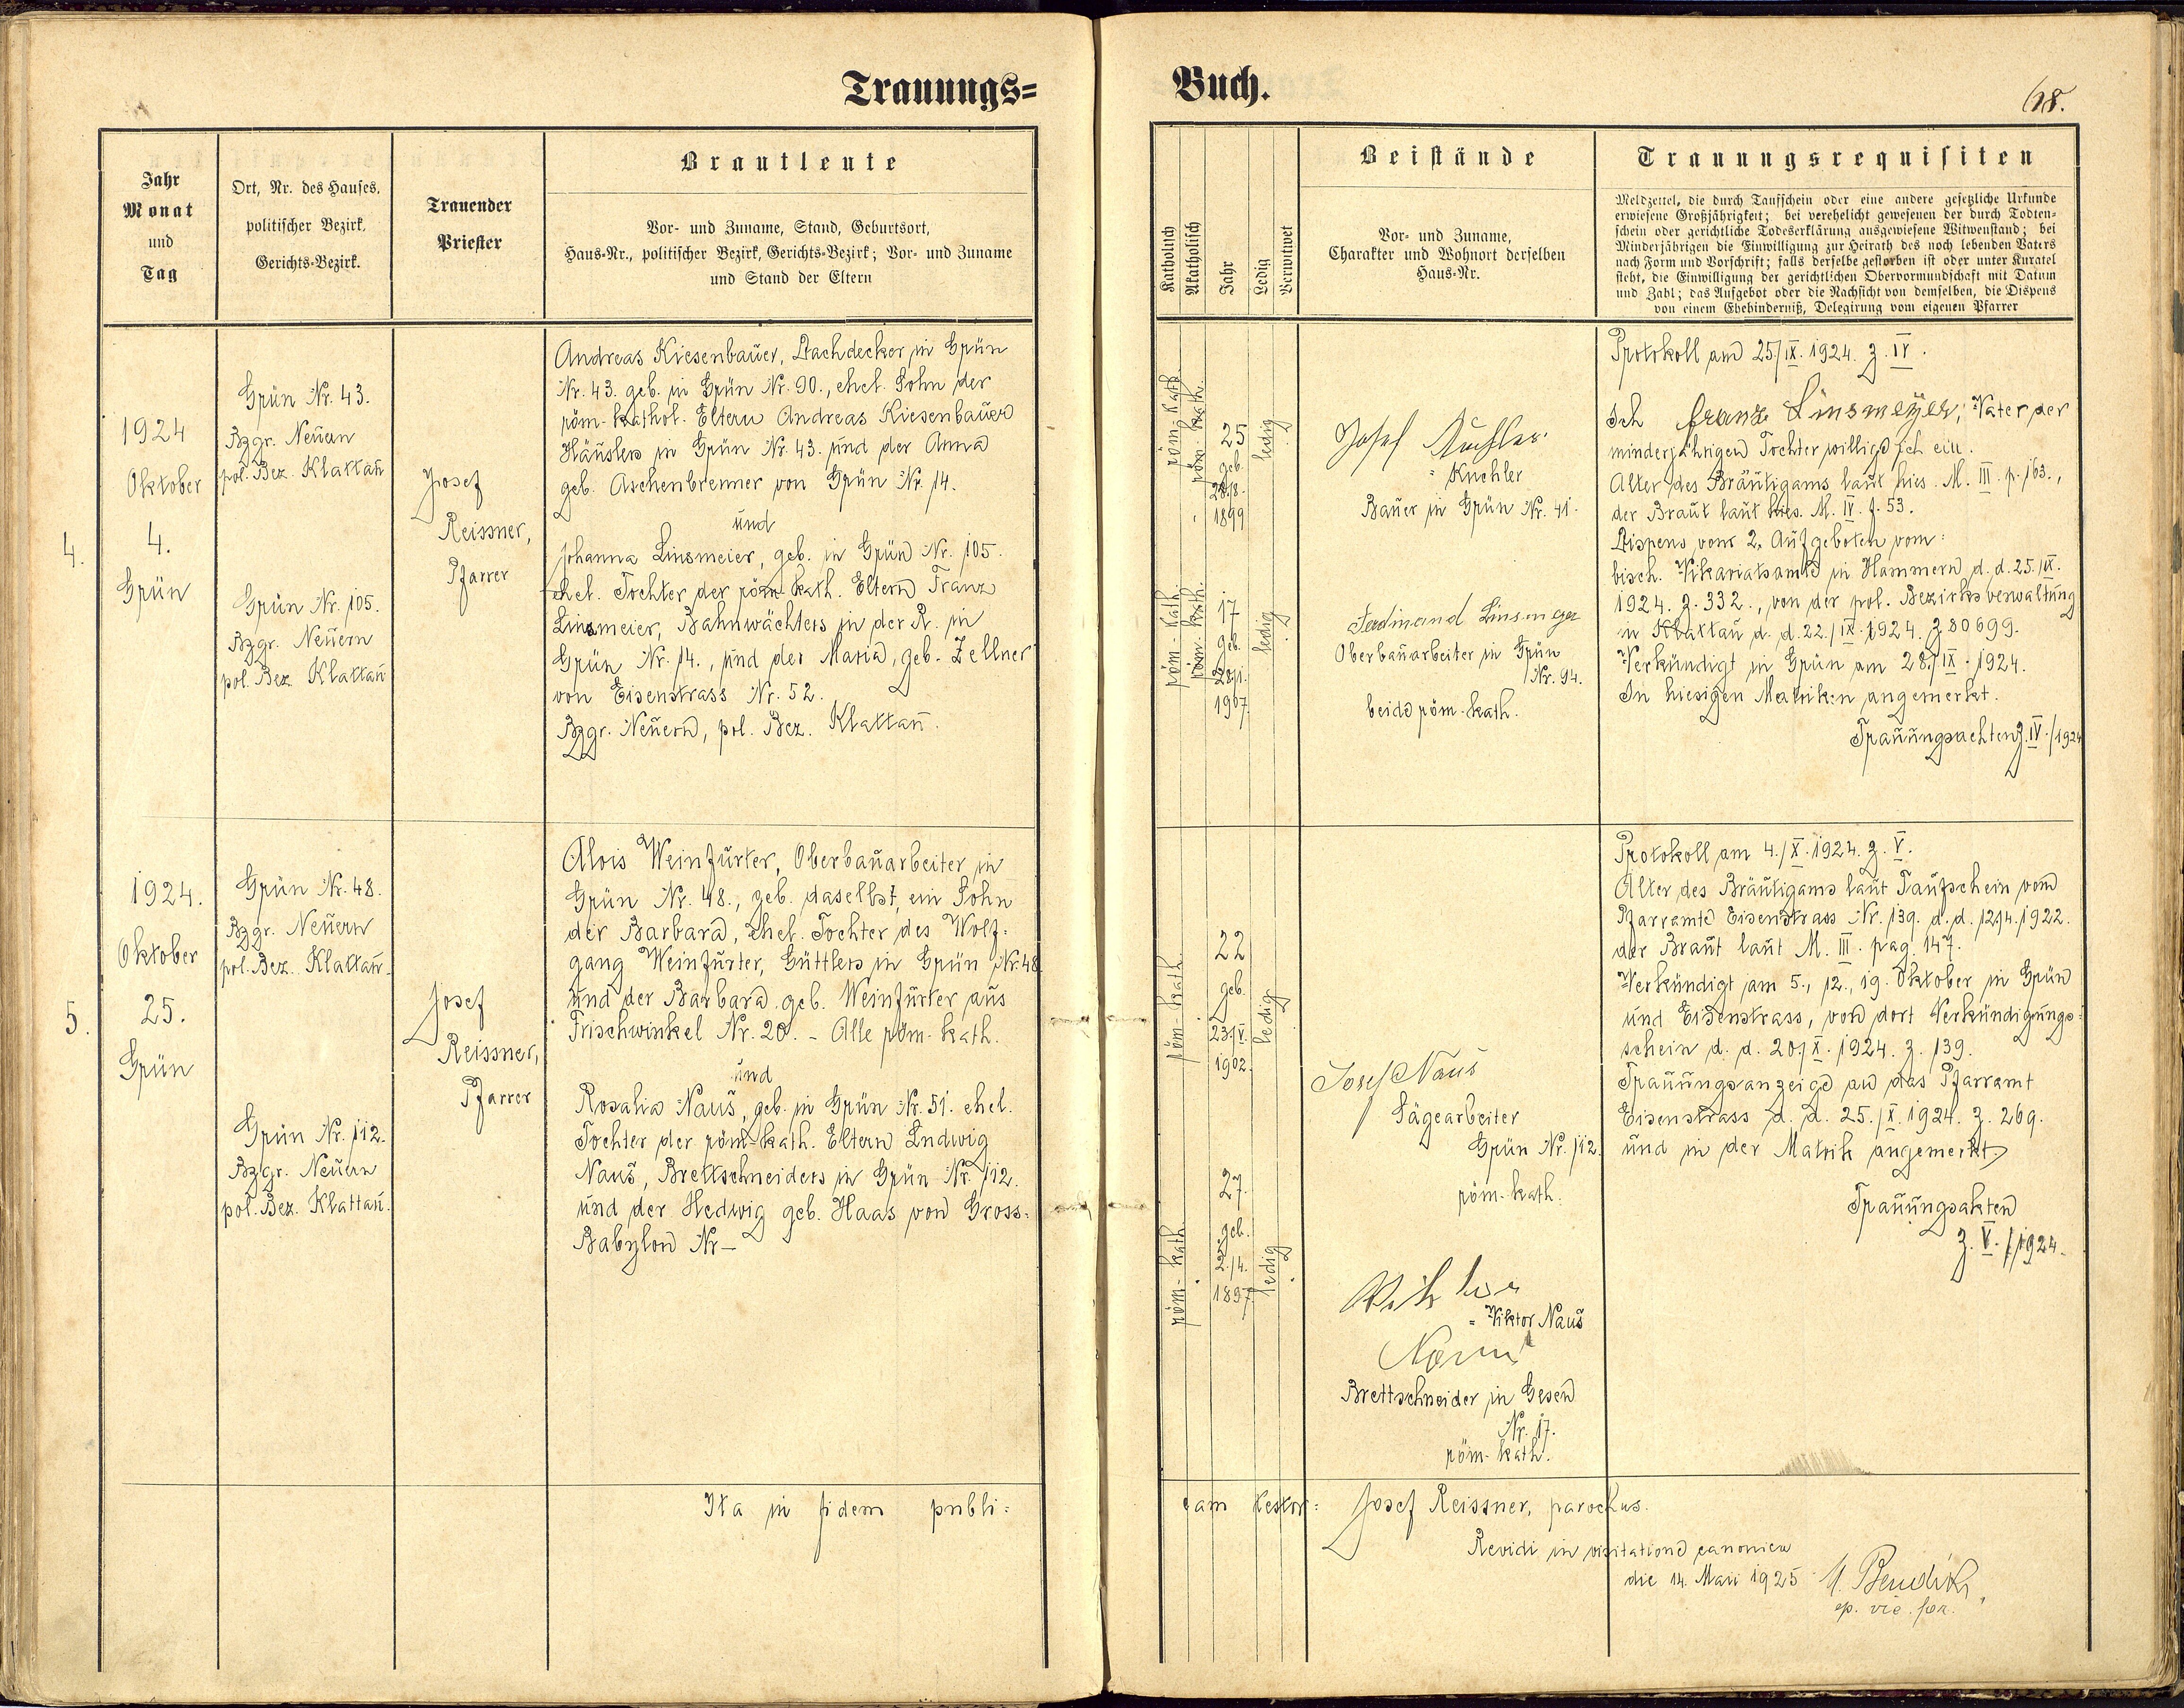 Trauungs=
Buch.
68.
Jahr
Monat
und
Tag
Ort, Nr. des Hauses,
politischer Bezirk,
Gerichts-Bezirk.
Trauender
Priester
Brautleute
Vor- und Zuname, Stand, Geburtsort,
Haus-Nr., politischer Bezirk, Gerichts-Bezirk; Vor- und Zuname
und Stand der Eltern
Katholisch
Akatholisch
Jahr
Ledig
Verwitwet
Beistände
Vor- und Zuname,
Charakter und Wohnort derselben
Haus-Nr.
Trauungsrequisiten
Meldzettel, die durch Taufschein oder eine andere gesetzliche Urkunde
erwiesene Großjährigkeit; bei verehelicht gewesenen der durch Todten-
schein oder gerichtliche Todeserklärung ausgewiesene Witwenstand; bei
Minderjährigen die Einwilligung zur Heirath des noch lebenden Vaters
nach Form und Vorschrift; falls derselbe gestorben ist oder unter Kuratel
steht, die Einwilligung der gerichtlichen Obervormundschaft mit Datum
und Zahl; das Aufgebot oder die Nachsicht von demselben, die Dispens
von einem Ehehinderniß, Delegirung vom eigenen Pfarrer
4.
1924
Oktober
4.
Grün
Grün Nr. 43.
Bzgr. Neuern
pol. Bez. Klattau
Grün Nr. 105.
Bzgr. Neuern
pol. Bez. Klattau
Josef
Reissner,
Pfarrer
Andreas Kiesenbauer, Dachdecker in Grün
Nr. 43. geb. in Grün Nr. 90., ehel. Sohn der
röm.-kathol. Eltern Andreas Kiesenbauer
Häuslers in Grün Nr. 43. und der Anna
geb. Aschenbrenner von Grün Nr. 14.
und
Johanna Linsmeier, geb. in Grün Nr. 105.
ehel. Tochter der röm-kath. Eltern Franz
Linsmeier, Bahnwächters in der R. in
Grün Nr. 14., und der Maria, geb. Zellner
von Eisenstrass Nr. 52.
Bzgr. Neuern, pol. Bez. Klattau.
röm-kath.
röm-kath.
25
geb.
28./8.
1899
ledig
röm-kath.
röm-kath.
17
geb.
28./1.
1907
ledig
Josef Kuchler
= Kuchler
Bauer in Grün Nr. 41.
Ferdinand Linsmeyer
Oberbauarbeiter in Grün
Nr. 94.
beide röm-kath.
Protokoll am 25./IX. 1924. z. IV.
Ich Franz Linsmeyer, Vater der
minderjährigen Tochter willige ich ein.
Alter des Bräutigams laut hies. M. III. p. 163.,
der Braut laut hies. M. IV. f. 53.
Dispens von 2. Aufgeboten vom:
bisch. Vikariatsamte in Hammern d. d. 25./IX.
1924. z. 332., von der pol. Bezirksverwaltung
in Klattau d. d. 22./IX. 1924. z. 80699.
Verkündigt in Grün am 28./IX. 1924.
In hiesigen Matriken angemerkt.
Trauungsachten z. IV./1924
5.
1924.
Oktober
25.
Grün
Grün Nr. 48.
Bzgr. Neuern
pol. Bez. Klattau.
Grün Nr. 112.
Bzgr. Neuern
pol. Bez. Klattau.
Josef
Reissner,
Pfarrer
Alois Weinfurter, Oberbauarbeiter in
Grün Nr. 48., geb. daselbst, ein Sohn
der Barbara, ehel. Tochter des Wolf=
gang Weinfurter, Güttlers in Grün Nr. 48
und der Barbara geb. Weinfurter aus
Frischwinkel Nr. 20. - Alle röm-kath.
und
Rosalia Naus, geb. in Grün Nr. 51. ehel.
Tochter der röm-kath. Eltern Ludwig
Naus, Brettschneiders in Grün Nr. 112.
und der Hedwig geb. Haas von Gross=
Babylon Nr –
röm-kath.
22
geb.
23./V.
1902.
ledig
röm-kath.
27.
geb.
2./4.
1897
ledig
Josef Naus
Sägearbeiter
Grün Nr. 112.
röm-kath.
Viktor
= Viktor Naus
Naus
Brettschneider in Gesen
Nr. 17.
röm-kath.
Protokoll am 4./X. 1924. z. V.
Alter des Bräutigams laut Taufschein vom
Pfarramte Eisenstrass Nr. 139. d. d. 12./4. 1922.
der Braut laut M. III. pag. 147.
Verkündigt am 5., 12., 19. Oktober in Grün
und Eisenstrass, von dort Verkündigungs=
schein d. d. 20./X. 1924. z. 139.
Trauungsanzeige an das Pfarramt
Eisenstrass d. d. 25./X. 1924. z. 269.
und in der Matrik angemerkt.
Trauungsakten
z. V./1924.
Ita in fidem publi=
cam testor: Josef Reissner, parochus.
Revidi in visitatione canonica
die 14. Maii 1925
ep. vic. for.